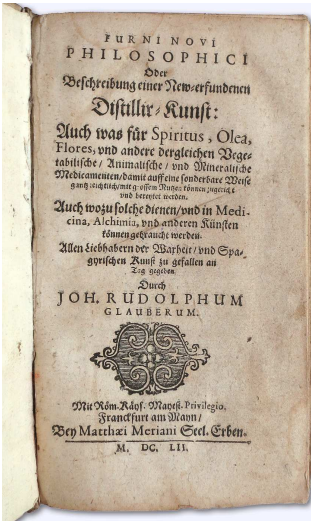 FURNI NOVI
PHILOSOPHICI
Oder
Beschreibung einer New-erfundenen
Distillir-Kunst:
Auch was für Spiritus, Olea,
Flores, vnd andere dergleichen Vege-
tabilische/ Animalische/ vnd Mineralische
Medicamenten/ damit auff eine sonderbare Weise
gantz leichtlich/ mit grossem Nutzen können zugericht
vnd bereytet werden.
Auch wozu solche dienen/ vnd in Medi-
cina, Alchimia, vnd anderen Künsten
können gebraucht werden.
Allen Liebhabern der Warheit/ vnd Spa-
gyrischen Kunst zu gefallen an
Tag gegeben
Durch
JOH. RUDOLPHUM
GLAUBERUM.
Mit Röm. Käys. Mayest. Privilegio.
Franckfurt am Mayn/
Bey Matthæi Meriani Seel. Erben.
M. DC. LII.